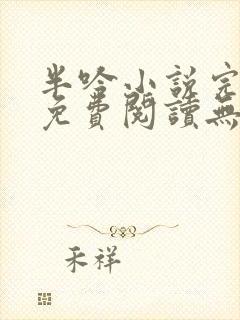 半吟小説完
免費閱讀無
禾祥